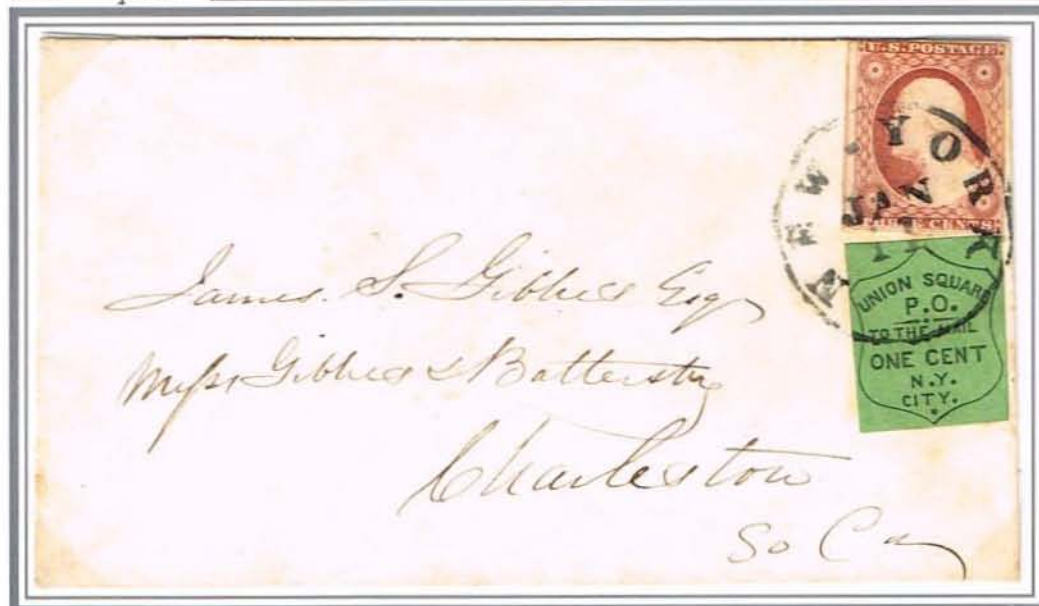 U.S. POSTAGE.
THREE CENTS.
NEW-YORK
JAN
UNION SQUARE
P.O.
TO THE MAIL
ONE CENT
N.Y.
CITY.
James. S. Gibbes Esq
Mess Gibbes & Battersby
Charleston
So Ca